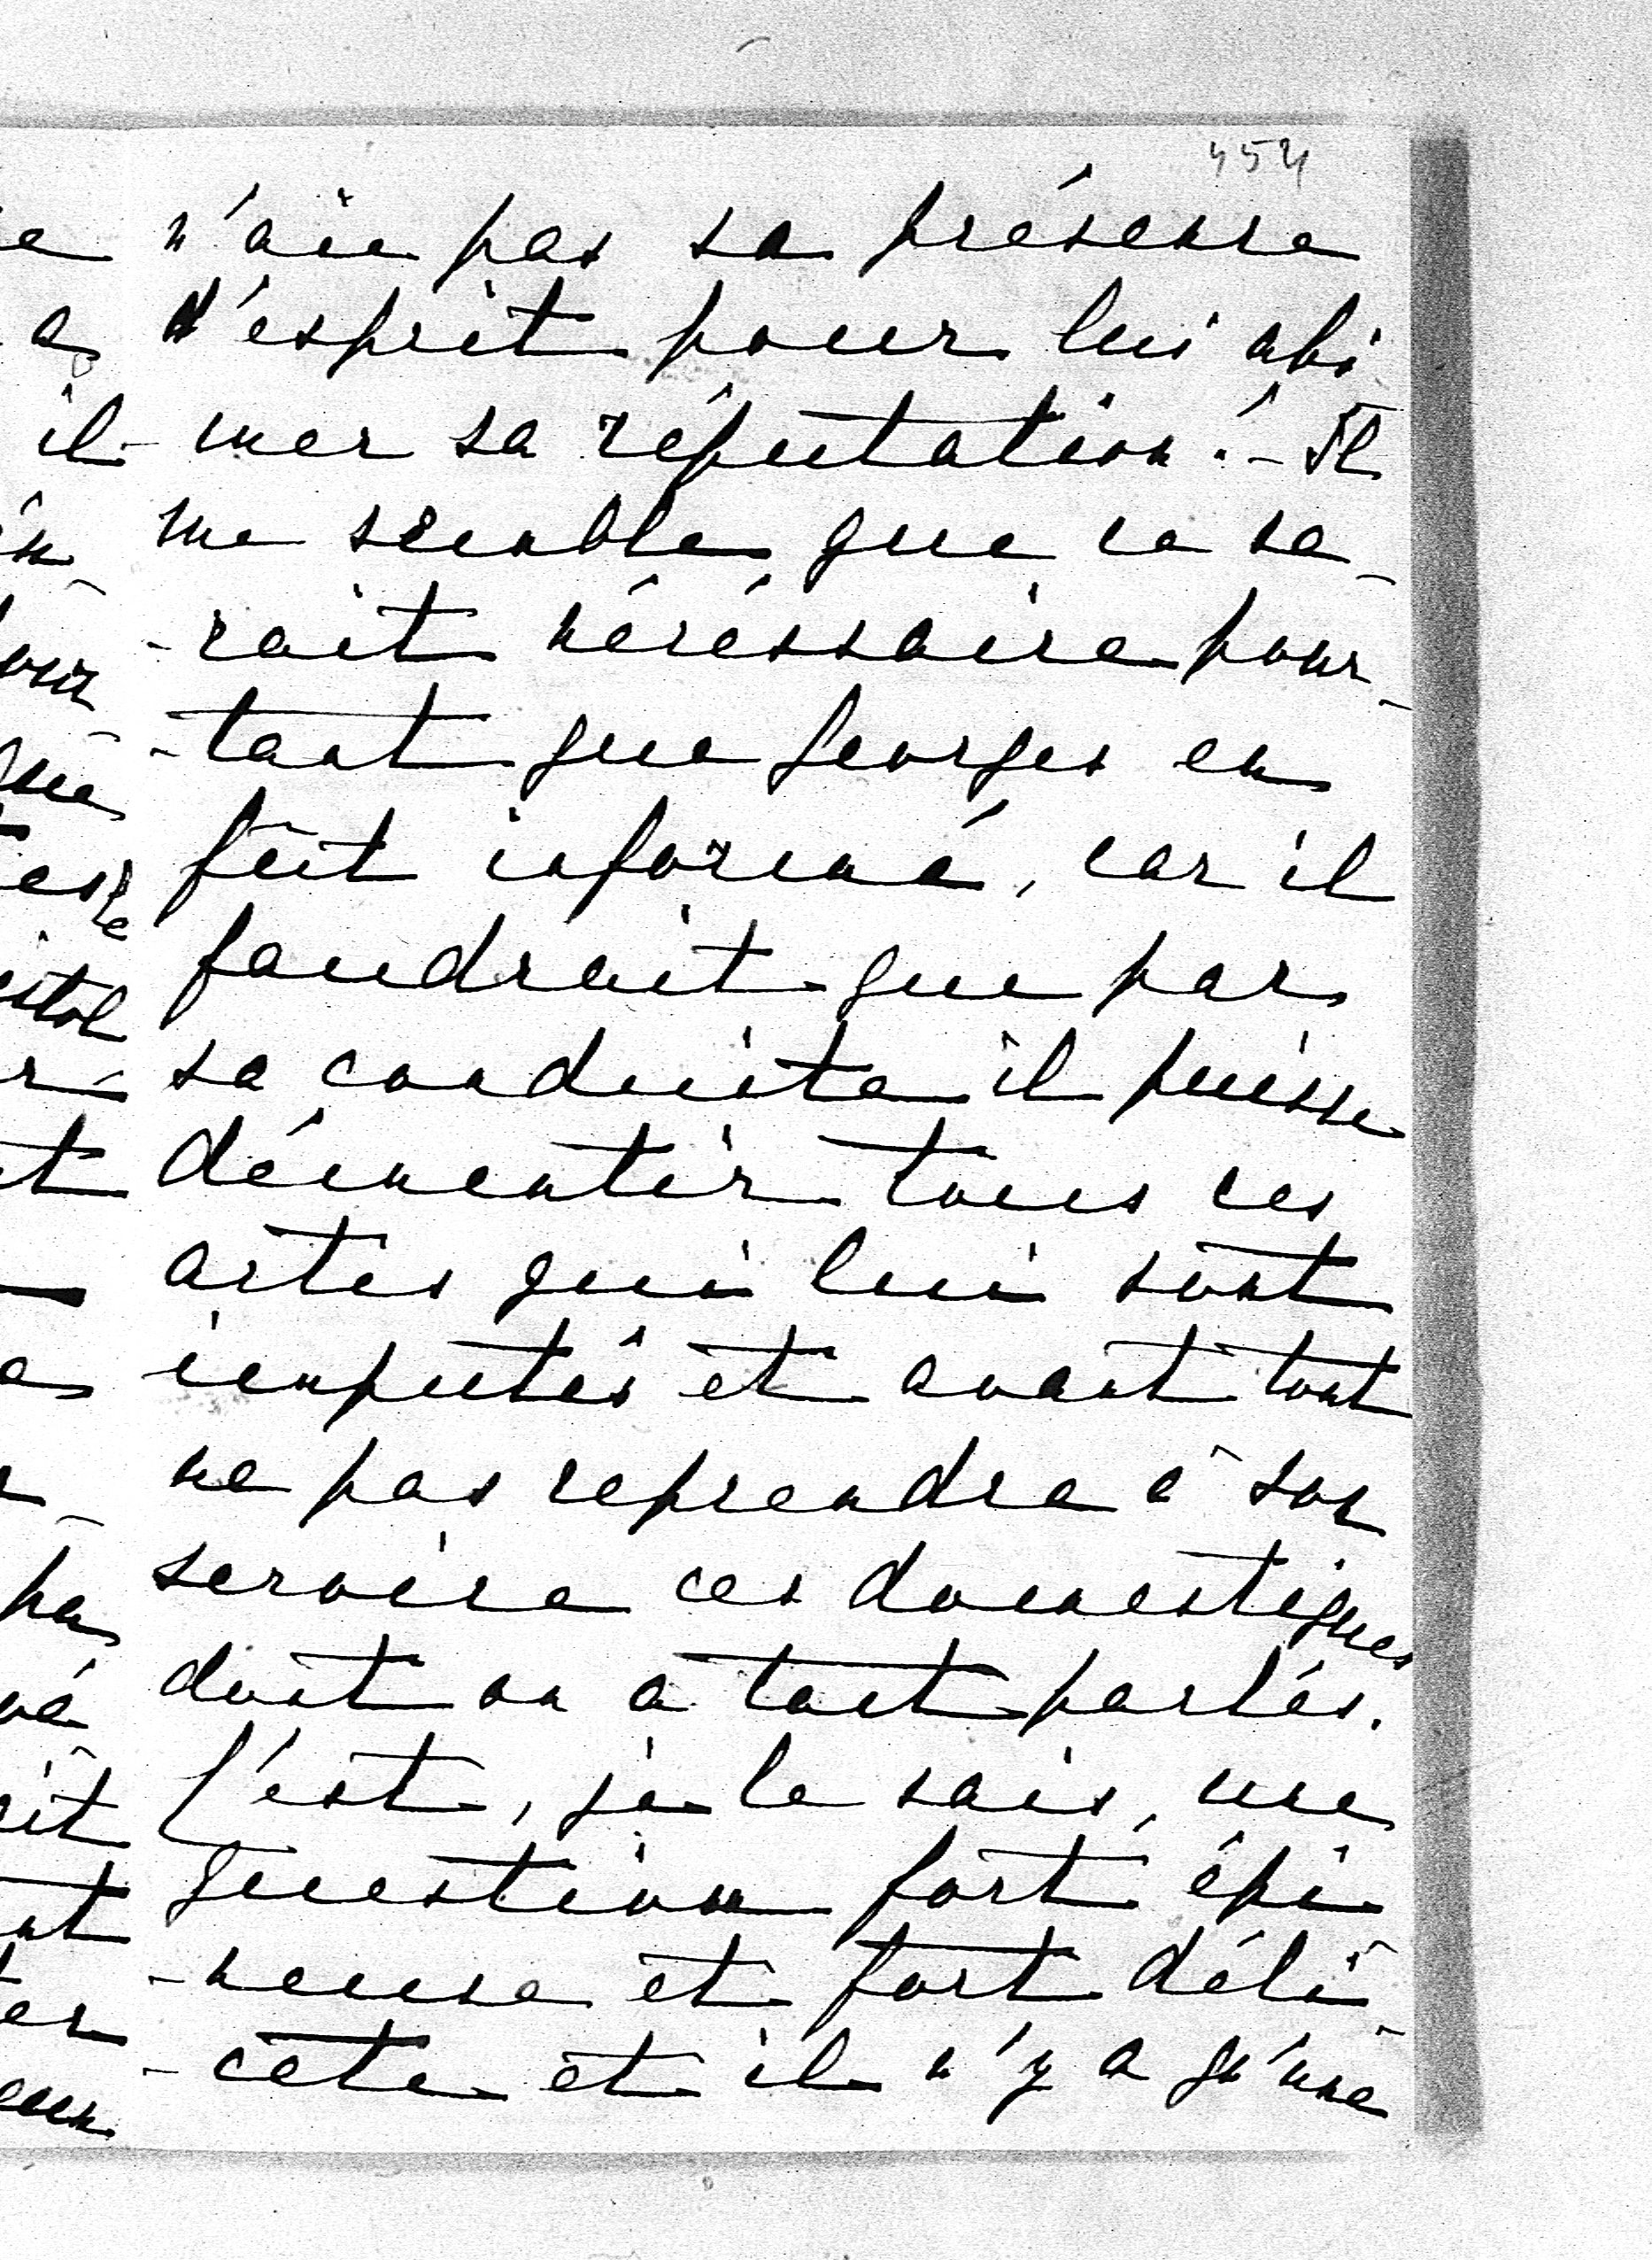 454
n'aie pas sa présence
d'esprit pour lui abi
mer sa réputation. - Il
me semble que ce se-
-rait nécéssaire pour-
-tant que Georges en
fût informé, car il
faudrait que par
sa conduite il puisse
démentir tous ces
actes qui lui sont
imputés et avant tout
ne pas reprendre à son
service ces domestiques
dont on a tant parlés.
C'est, je le sais, une
question fort épi
-neuse et fort déli-
-cate et il n'y a qu'une